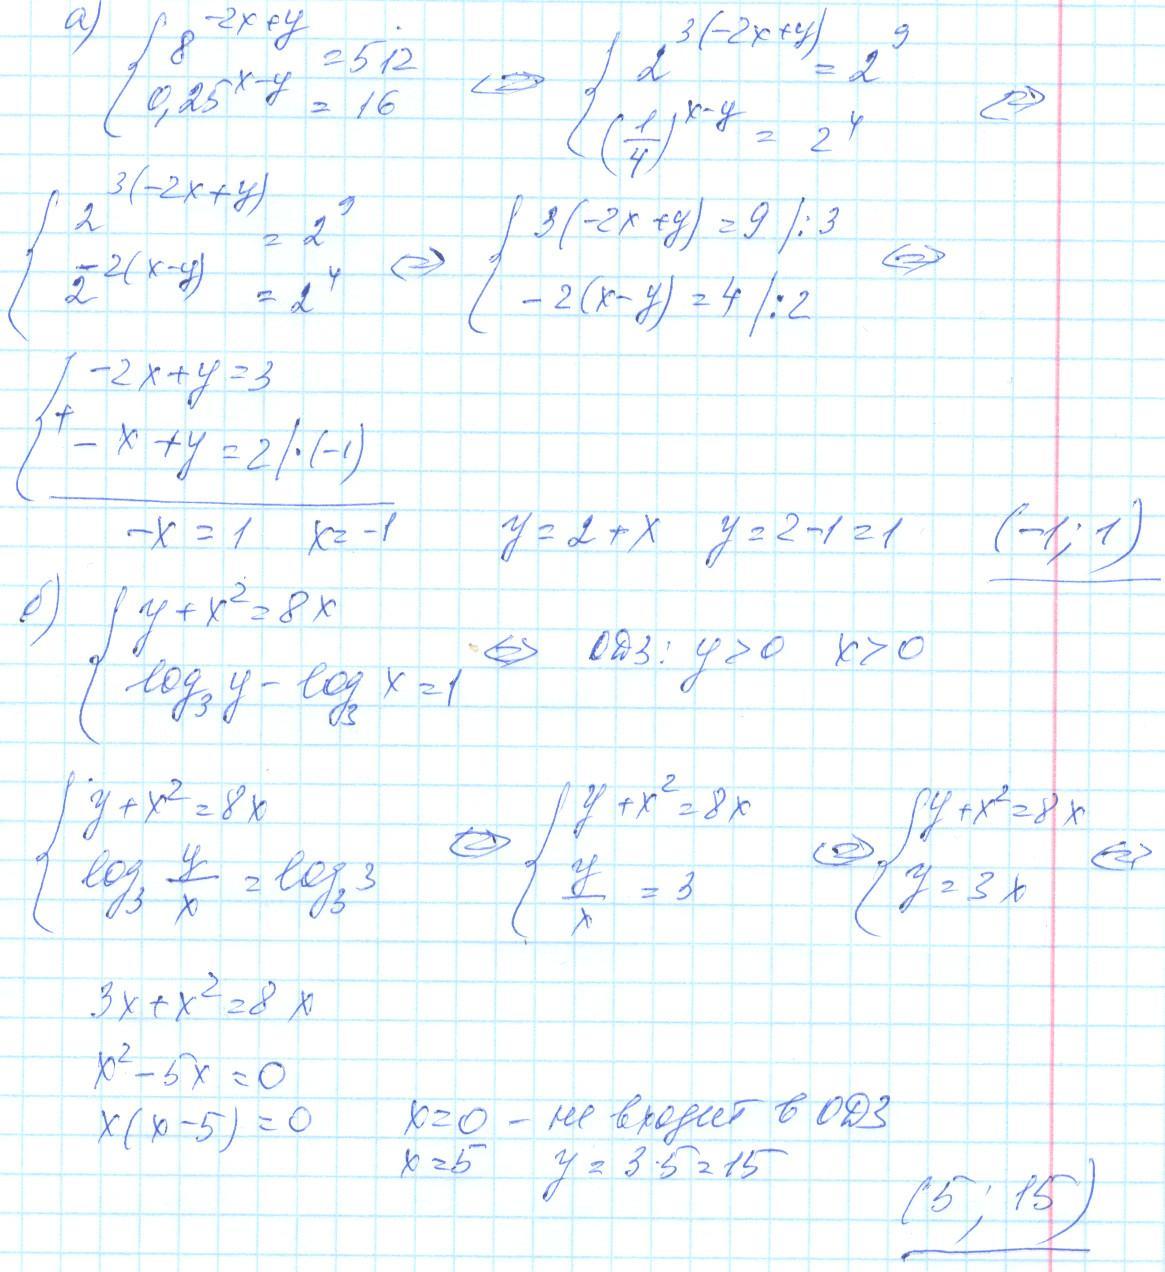 а) { 8^(-2x+y) = 512
0,25^(x-y) = 16 <=> { 2^(3(-2x+y)) = 2^9
(1/4)^(x-y) = 2^4 <=>
{ 2^(3(-2x+y)) = 2^9
2^(-2(x-y)) = 2^4 <=> { 3(-2x+y) = 9 |:3
-2(x-y) = 4 |:2 <=>
{ -2x+y=3
+ -x+y=2 |·(-1)
-x=1 x=-1 y=2+x y=2-1=1 (-1; 1)
б) { y+x²=8x
log₃y - log₃x=1 <=> ОДЗ: y>0 x>0
{ y+x²=8x
log₃ y/x = log₃3 <=> { y+x²=8x
y/x = 3 <=> { y+x²=8x
y=3x <=>
3x+x²=8x
x²-5x=0
x(x-5)=0 x=0 - не входит в ОДЗ
x=5 y=3·5=15
(5; 15)